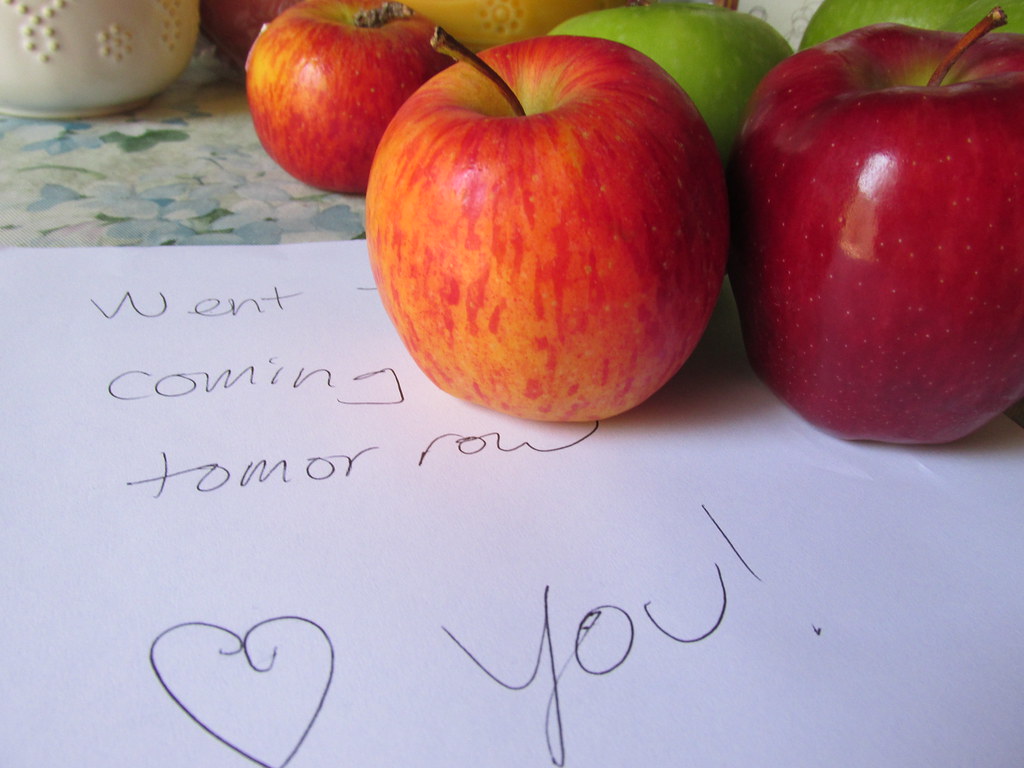 Went
coming
tomorrow
♡ you!